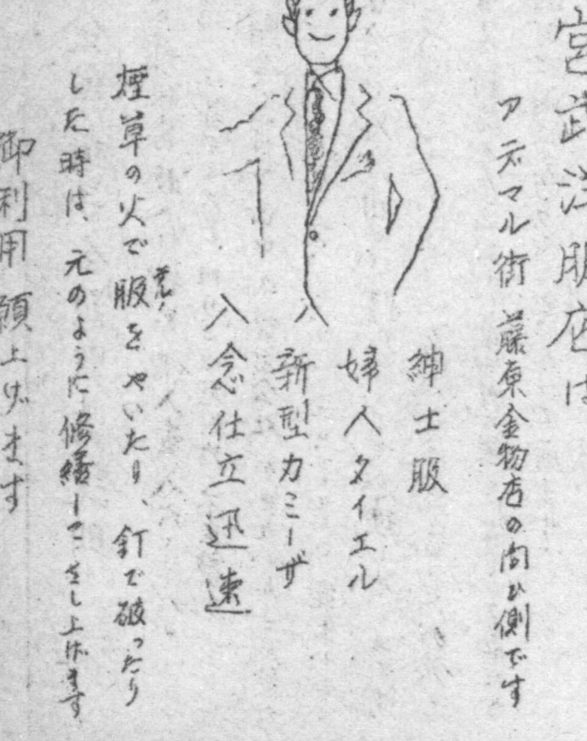 宮武洋服店は
アデマル街、藤原金物店の向い側です
紳士服
婦人タイエル
新型カミーザ
入念仕立迅速
煙草の火で服をやいたり、釘で破ったり
した時は、元のように修繕してさし上げます
御利用願上げます